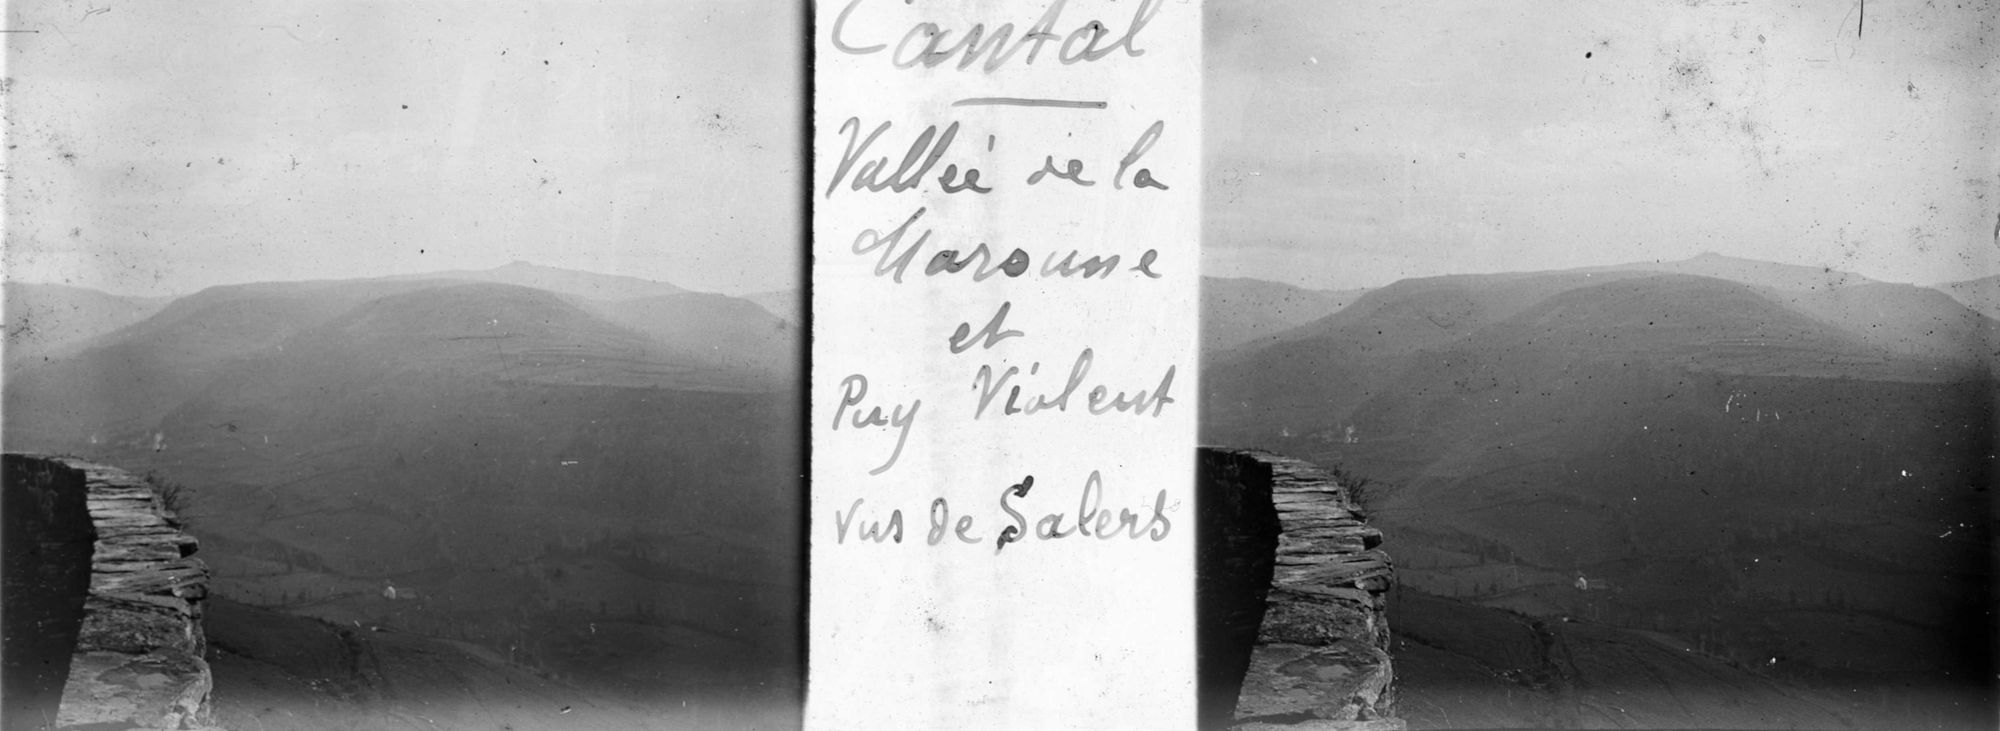 Cantal
Vallée de la
Maronne
et
Puy Violent
vus de Salers